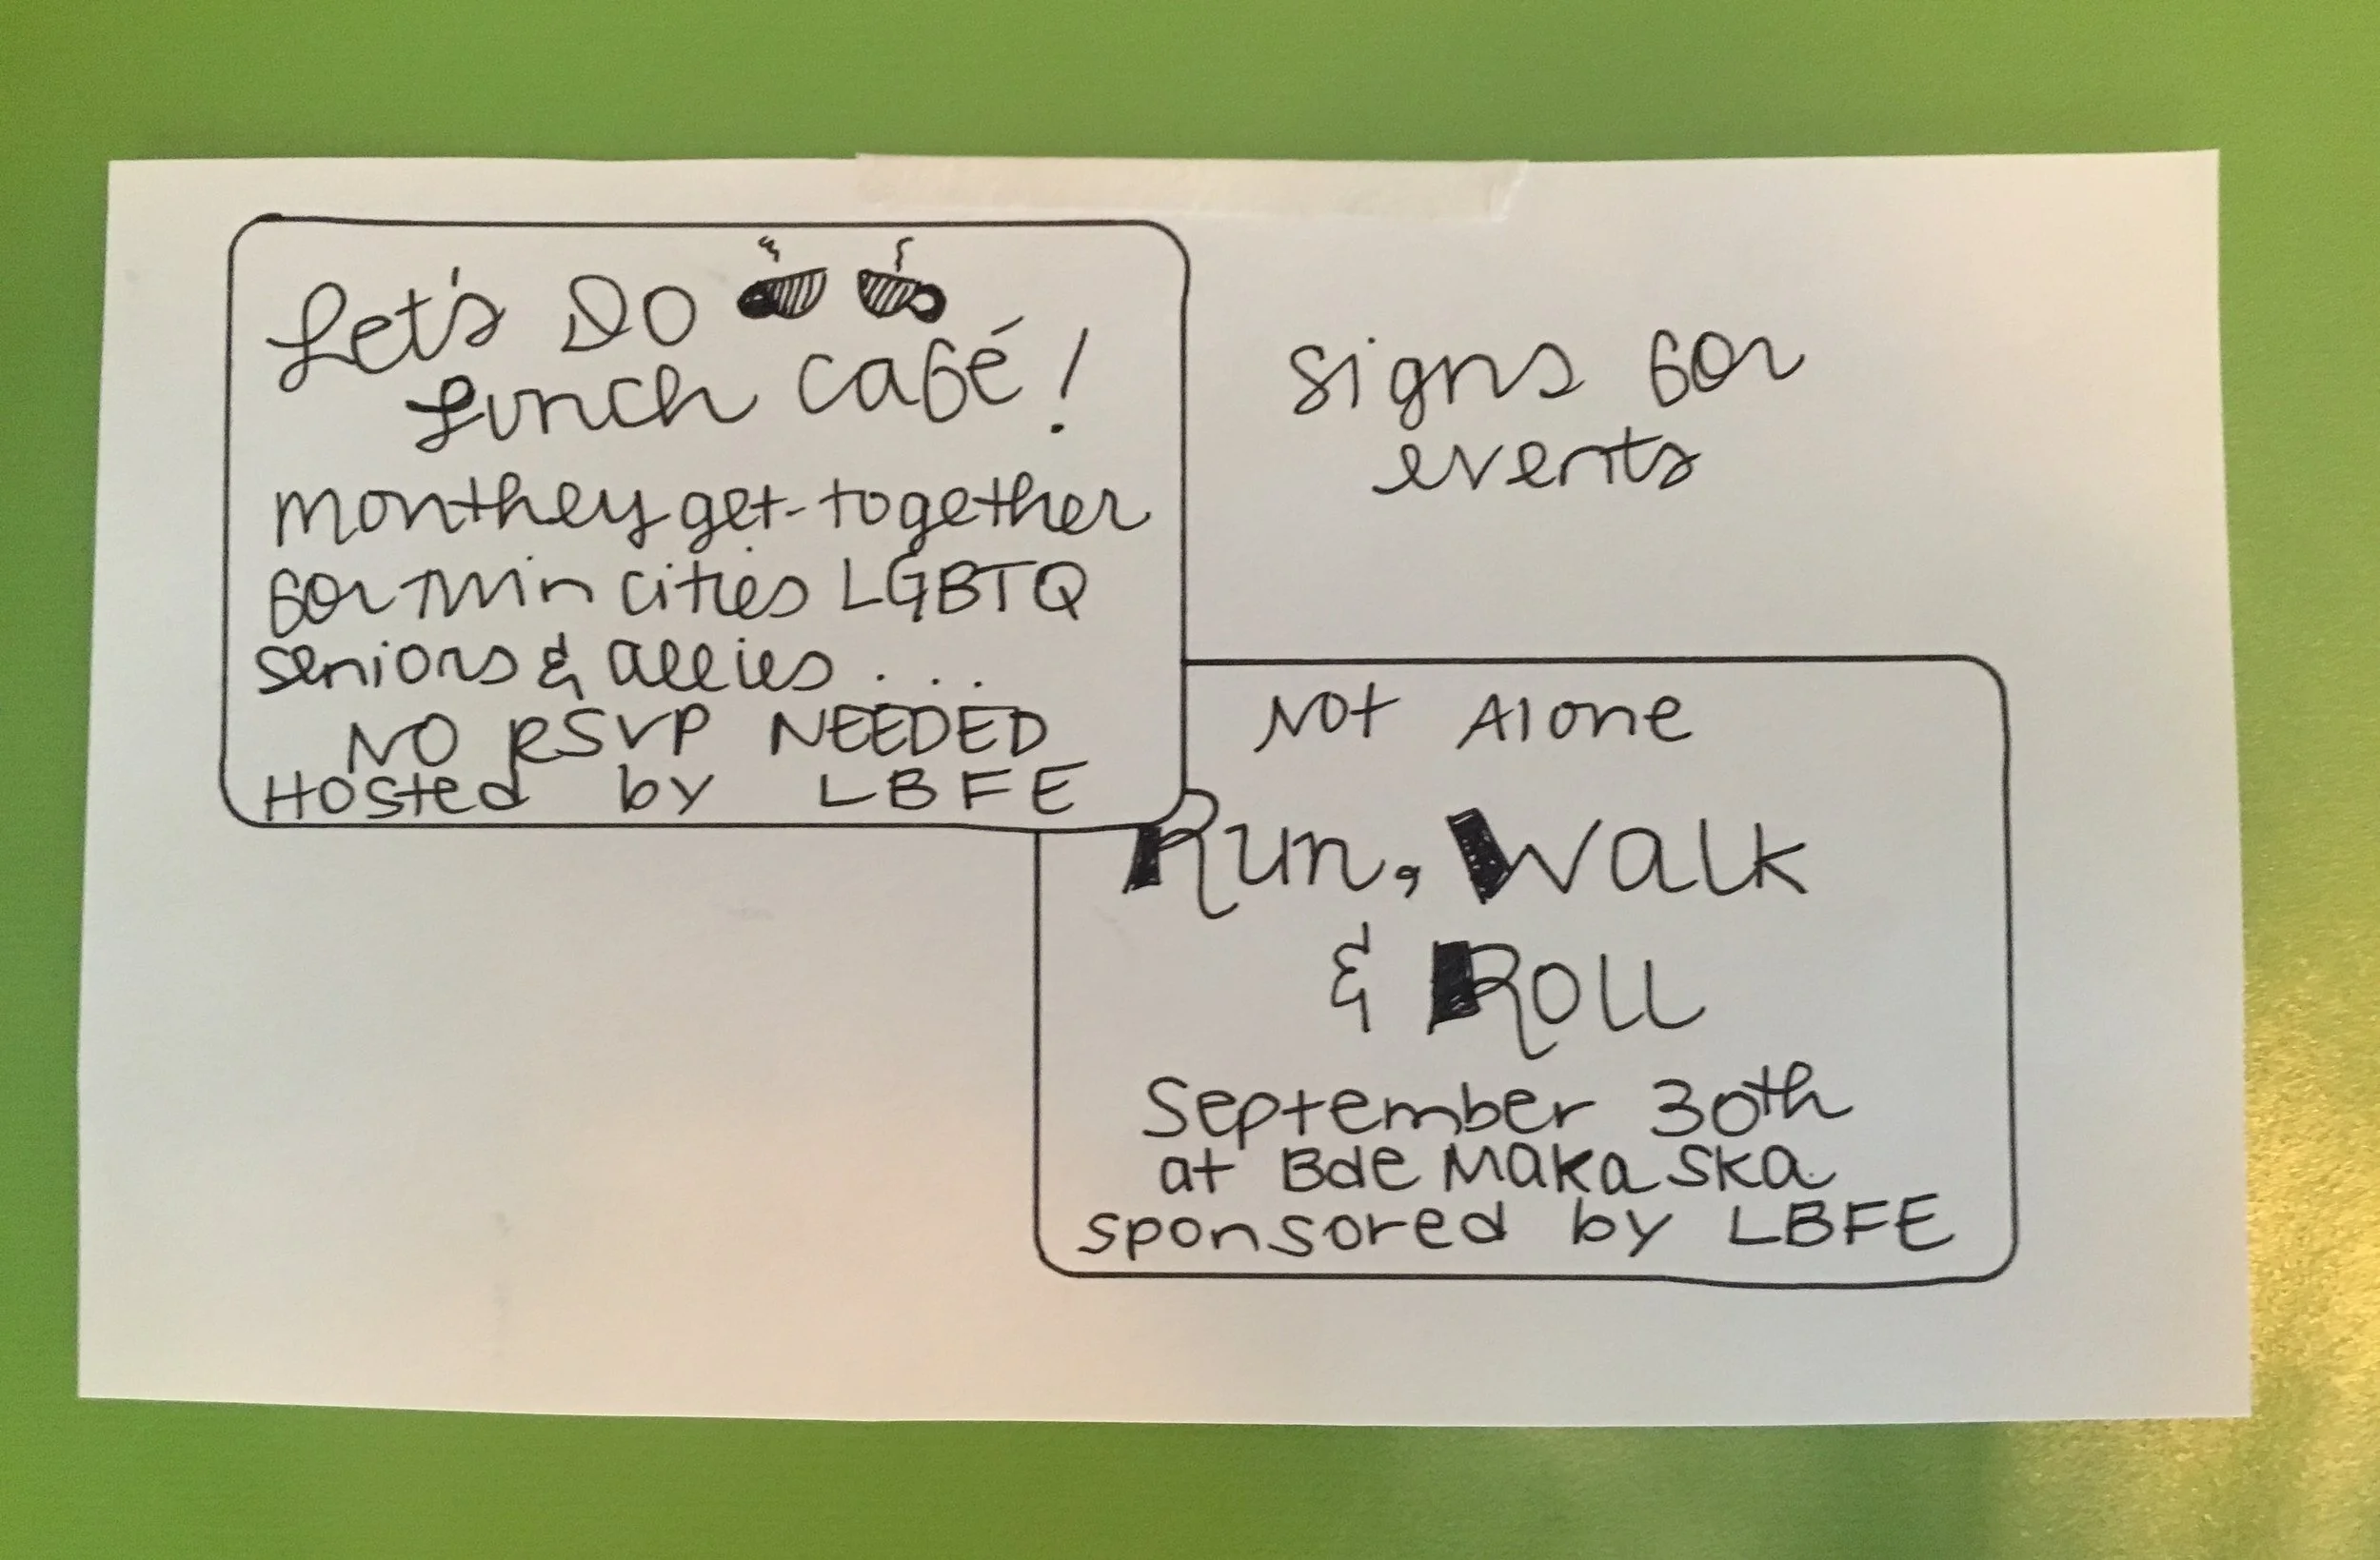 Let's Do
Lunch café!
monthly get-together
for twin cities LGBTQ
seniors & allies...
NO RSVP NEEDED
Hosted by LBFE
signs for
events
Not Alone
Run, Walk
& Roll
September 30th
at Bde Maka Ska
sponsored by LBFE